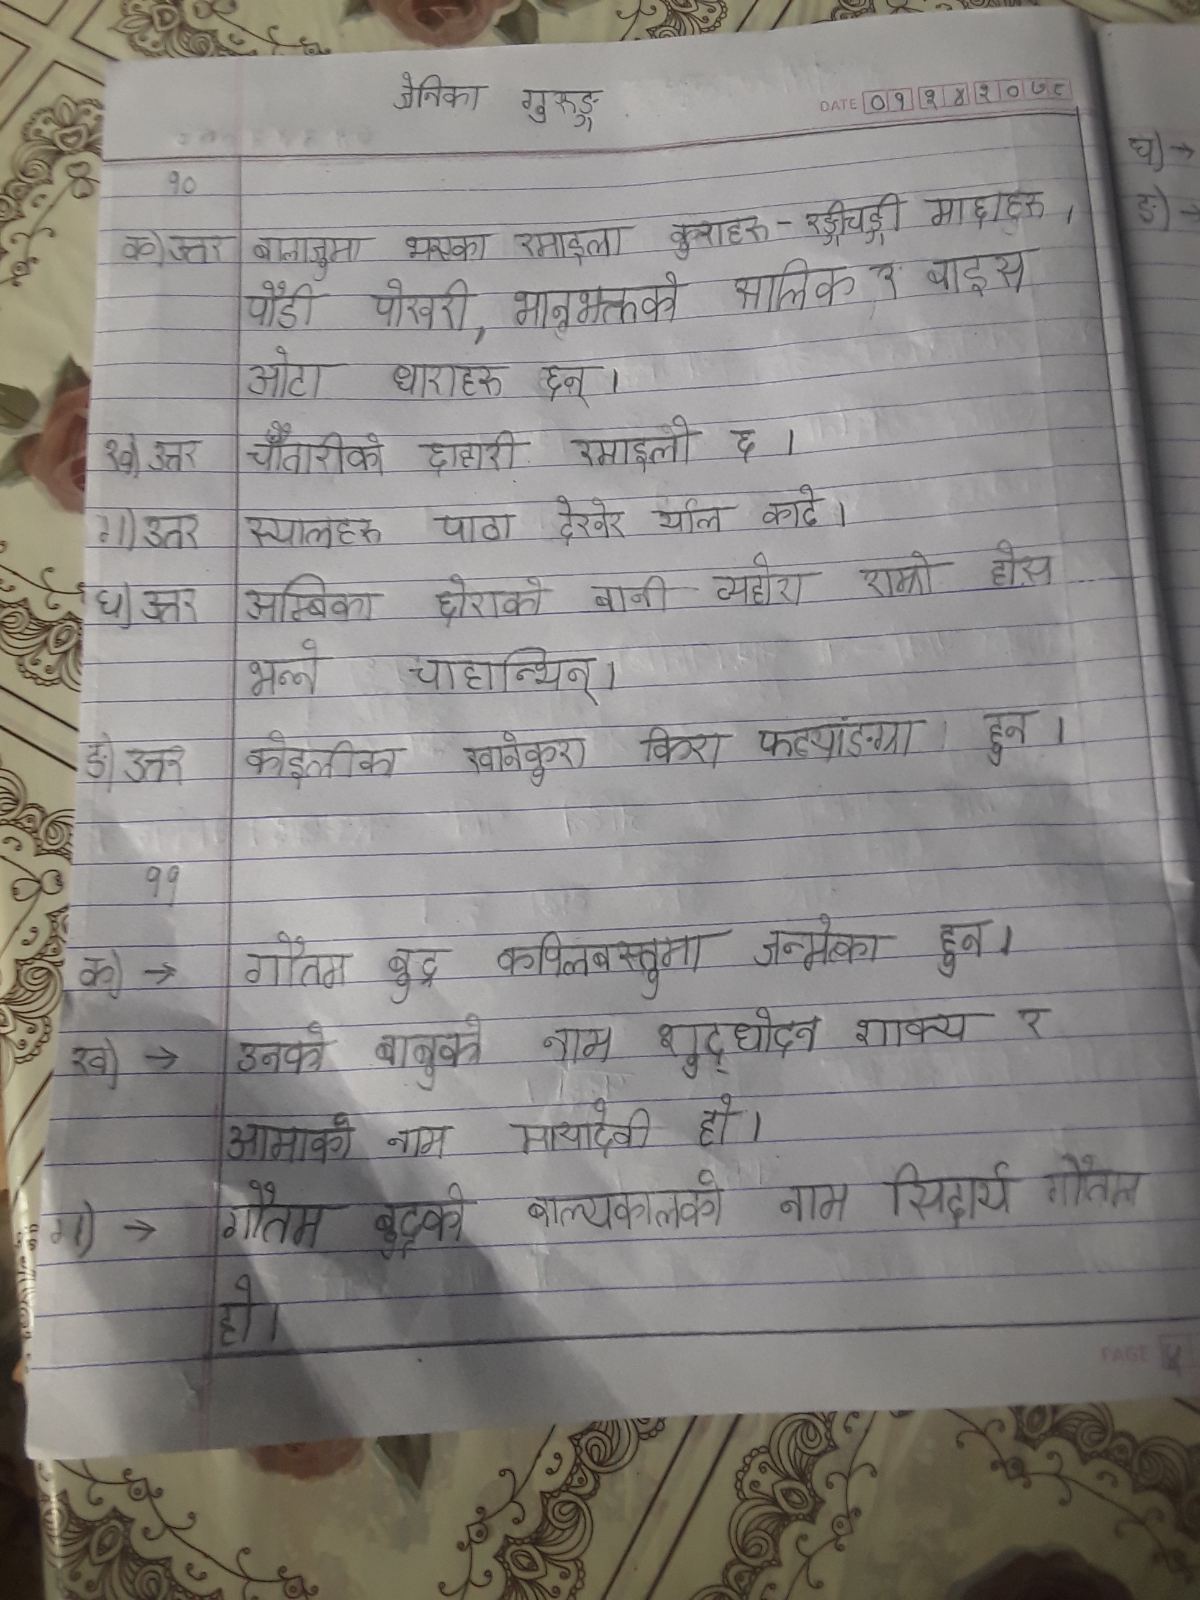 जेनिका गुरुङ्ग
DATE ०१२४२०७८
१०
क) उत्तर बालाजुमा भएका रमाइला कुराहरु - रङ्गीचङ्गी माछाहरु,
पौडी पोखरी, भानुभक्तको सालिक र बाइस
ओटा धाराहरु छन्।
ख) उत्तर चौतारीको छाहारी रमाइलो छ।
ग) उत्तर स्यालहरु पाठा देखेर र्याल काढे।
घ) उत्तर अम्बिका छोराको बानी व्यहोरा राम्रो होस
भन्ने चाहान्थिन्।
ङ) उत्तर कोइलीका खानेकुरा किरा फट्याङग्रा हुन।
११
क) → गौतम बुद्द कपिलबस्तुमा जन्मेका हुन।
ख) → उनको बाबुको नाम शुद्धोदन शाक्य र
आमाको नाम मायादेवी हो।
ग) → गौतम बुद्दको बाल्यकालको नाम सिदार्थ गौतम
हो।
PAGE ५
घ) →
ङ) →